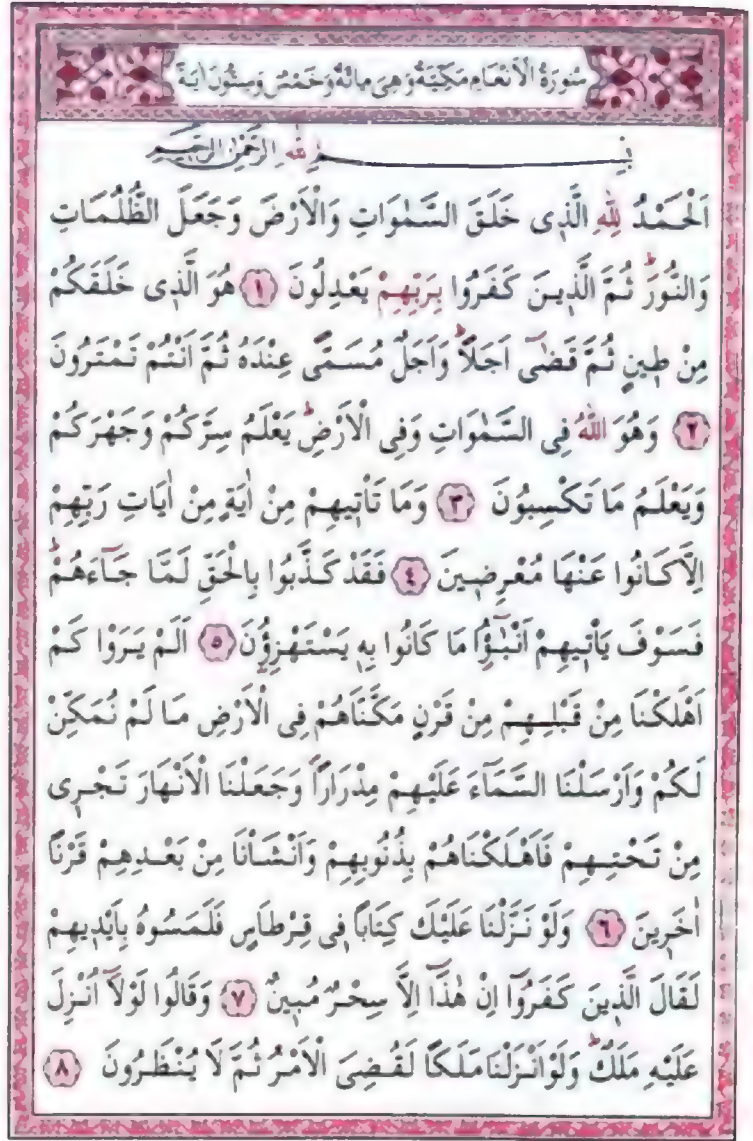 سُورَةُ الْاَنْعَامِ مَكِّيَّةٌ وَهِىَ مِائَةٌ وَخَمْسٌ وَسِتُّونَ اٰيَةً
بِسْمِ اللّٰهِ الرَّحْمٰنِ الرَّحِيمِ
اَلْحَمْدُ لِلّٰهِ الَّذٖى خَلَقَ السَّمٰوَاتِ وَالْاَرْضَ وَجَعَلَ الظُّلُمَاتِ
وَالنُّورَؕ ثُمَّ الَّذٖينَ كَفَرُوا بِرَبِّهِمْ يَعْدِلُونَ ﴿١﴾ هُوَ الَّذٖى خَلَقَكُمْ
مِنْ طٖينٍ ثُمَّ قَضٰٓى اَجَلًاؕ وَاَجَلٌ مُسَمًّى عِنْدَهُ ثُمَّ اَنْتُمْ تَمْتَرُونَ
﴿٢﴾ وَهُوَ اللّٰهُ فِى السَّمٰوَاتِ وَفِى الْاَرْضِؕ يَعْلَمُ سِرَّكُمْ وَجَهْرَكُمْ
وَيَعْلَمُ مَا تَكْسِبُونَ ﴿٣﴾ وَمَا تَاْتٖيهِمْ مِنْ اٰيَةٍ مِنْ اٰيَاتِ رَبِّهِمْ
اِلَّا كَانُوا عَنْهَا مُعْرِضٖينَ ﴿٤﴾ فَقَدْ كَذَّبُوا بِالْحَقِّ لَمَّا جَٓاءَهُمْؕ
فَسَوْفَ يَاْتٖيهِمْ اَنْبٰٓؤُ۬ا مَا كَانُوا بِهٖ يَسْتَهْزِؤُ۫نَ ﴿٥﴾ اَلَمْ يَرَوْا كَمْ
اَهْلَكْنَا مِنْ قَبْلِهِمْ مِنْ قَرْنٍ مَكَّنَّاهُمْ فِى الْاَرْضِ مَا لَمْ نُمَكِّنْ
لَكُمْ وَاَرْسَلْنَا السَّمَٓاءَ عَلَيْهِمْ مِدْرَارًاࣕ وَجَعَلْنَا الْاَنْهَارَ تَجْرٖى
مِنْ تَحْتِهِمْ فَاَهْلَكْنَاهُمْ بِذُنُوبِهِمْ وَاَنْشَاْنَا مِنْ بَعْدِهِمْ قَرْنًا
اٰخَرٖينَ ﴿٦﴾ وَلَوْ نَزَّلْنَا عَلَيْكَ كِتَابًا فٖى قِرْطَاسٍ فَلَمَسُوهُ بِاَيْدٖيهِمْ
لَقَالَ الَّذٖينَ كَفَرُٓوا اِنْ هٰذَٓا اِلَّا سِحْرٌ مُبٖينٌ ﴿٧﴾ وَقَالُوا لَوْلَٓا اُنْزِلَ
عَلَيْهِ مَلَكٌؕ وَلَوْ اَنْزَلْنَا مَلَكًا لَقُضِىَ الْاَمْرُ ثُمَّ لَا يُنْظَرُونَ ﴿٨﴾